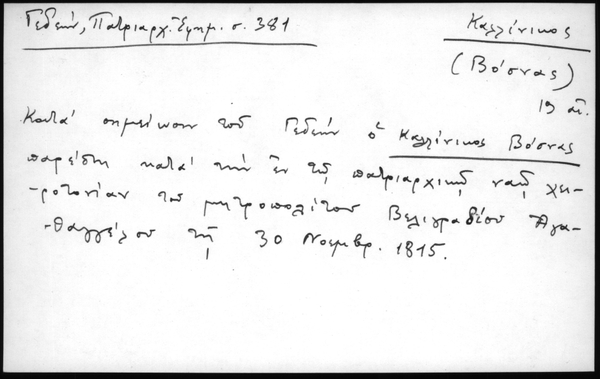 Γεδεών, Πατριαρχ. Ἐφημ. σ. 381
Καλλίνικος
(Βόσνας)
19 αἰ.
Κατά σημείωσιν τοῦ Γεδεών ὁ Καλλίνικος Βόσνας
παρέστη κατά τήν ἐν τῷ πατριαρχικῷ ναῷ χει-
-ροτονίαν τοῦ μητροπολίτου Βελιγραδίου Ἀγα-
-θαγγέλου τῇ 30 Νοεμβρ. 1815.